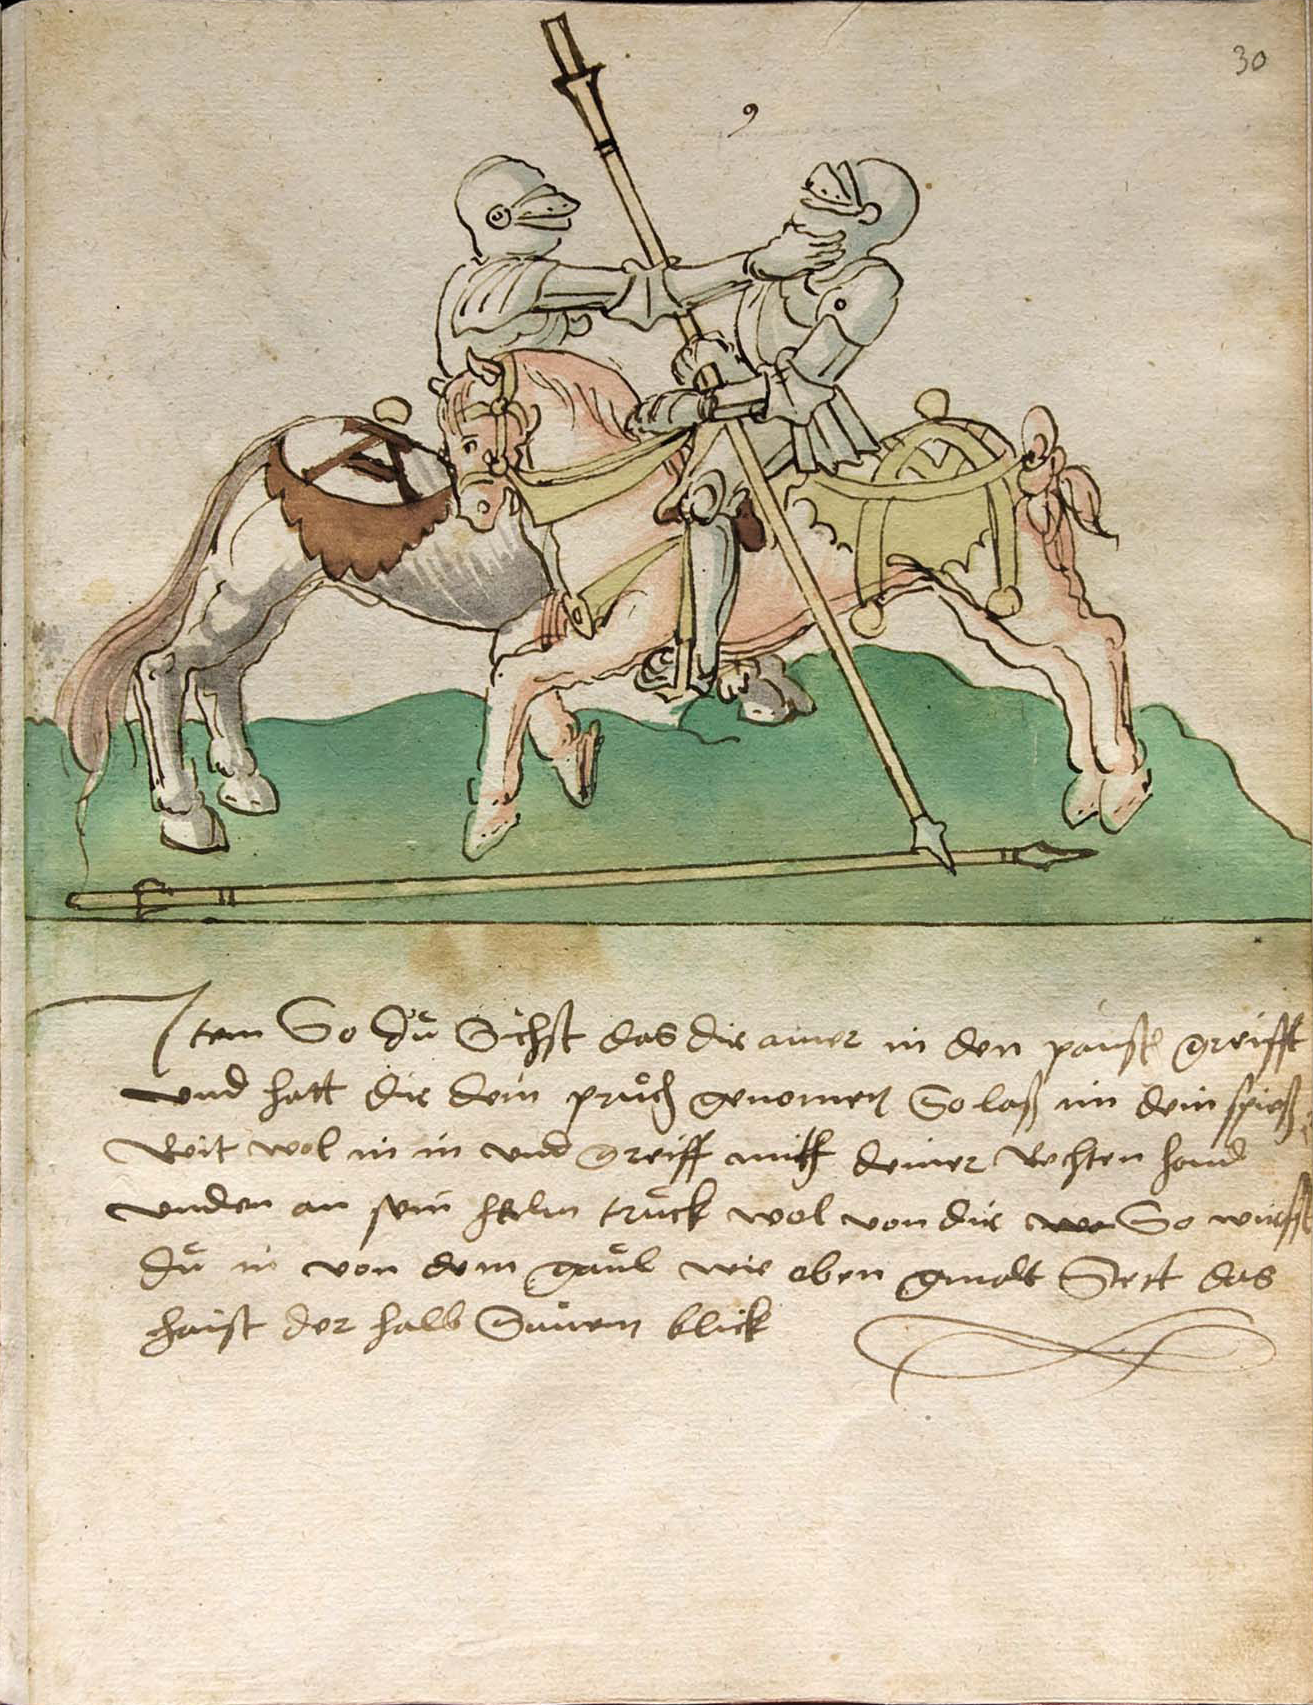 30
9
Item So dů Sichst das dir ainer in den paust greifft
und hatt dir dein pruch genomen So laß im dein spieß
Reit wol in in und greiff mit deiner Rechten hand
unden an sein helm truck wol von dir So wirfst
dů in von dem gaůl wie oben gmalt Stett das
haist der halb Sauren blick